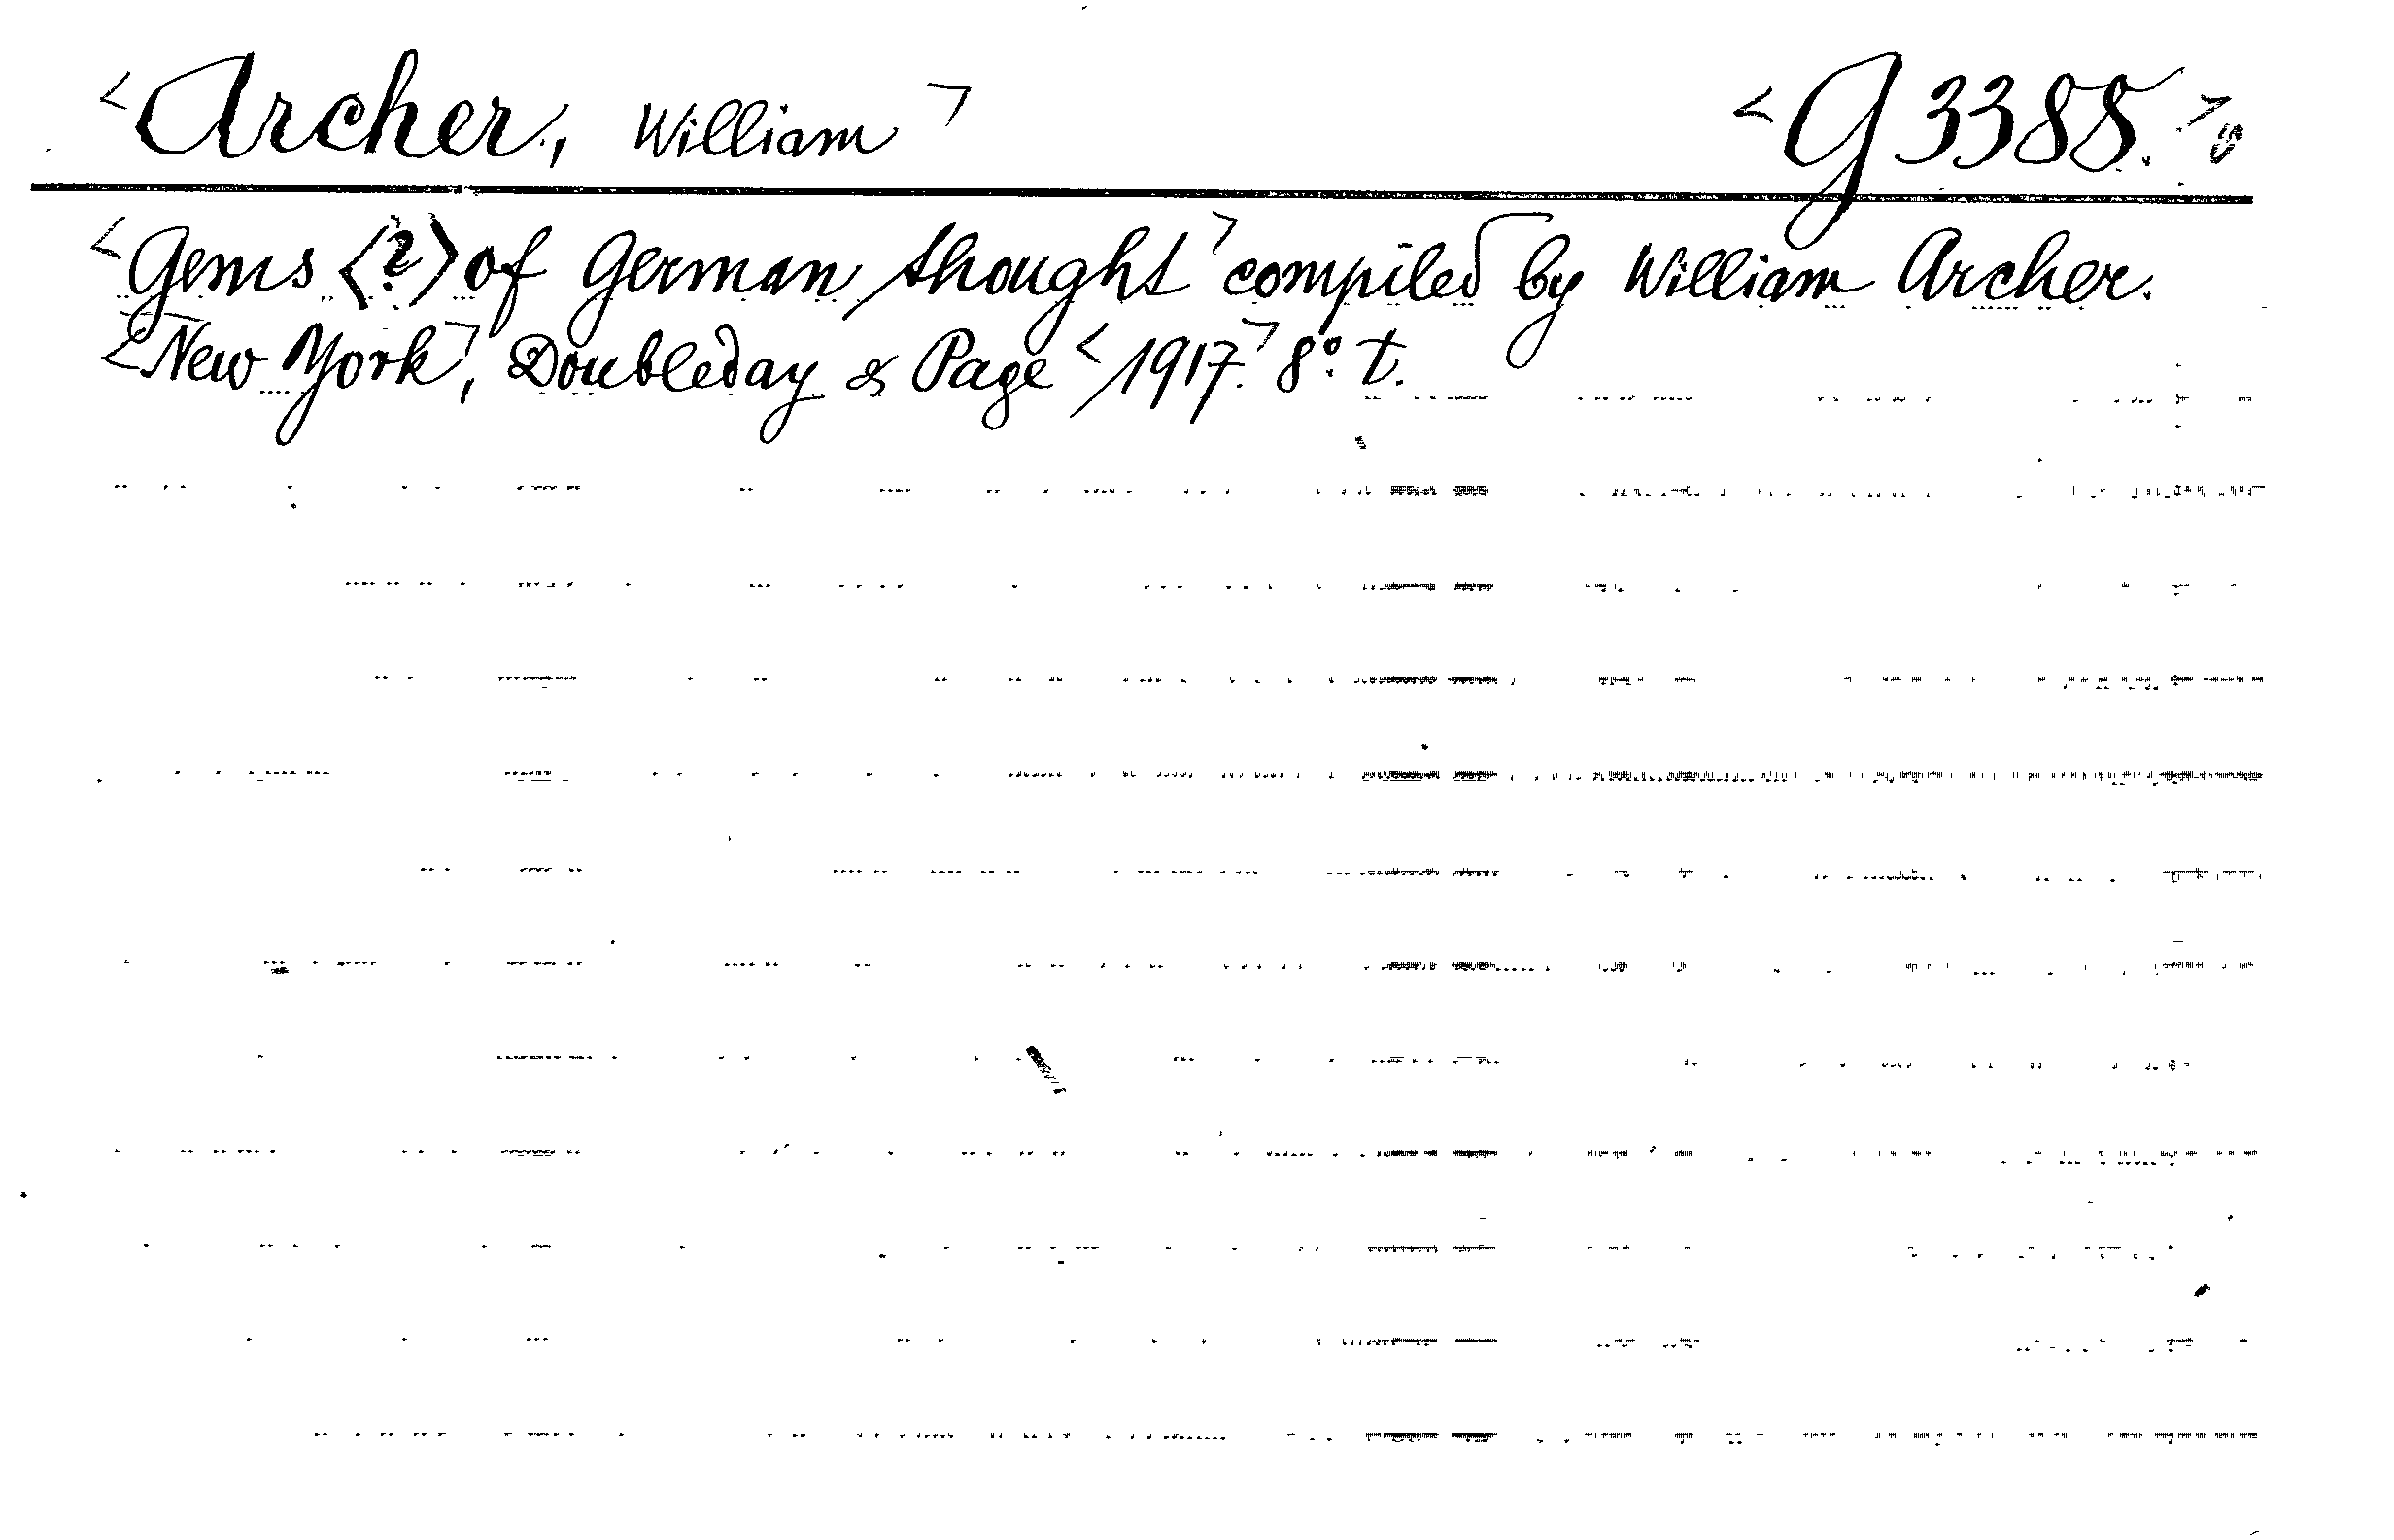 <Archer, William> <G 3388.>
<Gems <?> of German thought> compiled by William Archer.
<New York>, Doubleday & Page <1917.> 8° t.